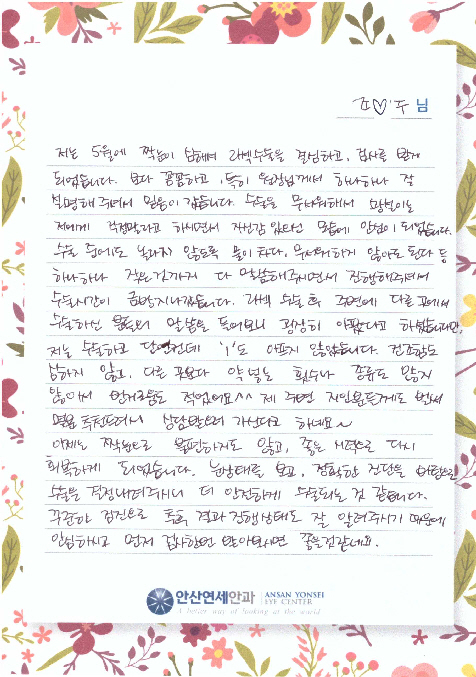 조♡주 님
저는 5월에 짝눈이 심해서 라섹수술을 결심하고, 검사를 받게
되었습니다. 보다 꼼꼼하고, 특히 원장님께서 하나하나 잘
설명해주셔서 믿음이 갔습니다. 수술을 무서워해서 망설이는
저에게 걱정말라고 하시면서 자신감 있으신 모습에 안심이 되었습니다.
수술 중에도 놀라지 않도록 물이 차다, 무서워하지 않아도 된다 등
하나하나 작은것까지 다 말씀해주시면서 진행해주셔서
수술시간이 금방지나갔습니다. 라섹 수술 후 주변에 다른 곳에서
수술하신 분들의 말씀을 들어보니 굉장히 아팠다고 하셨습니다만,
저는 수술하고 당연한데 '1'도 아프지 않았습니다. 건조함도
심하지 않고, 다른 곳보다 약 넣는 횟수나 종류도 많지
않아서 번거로움도 적었어요^^ 제 주변 지인분들께도 벌써
몇분 추천드려서 상담받으러 가신다고 하네요~
이제는 짝눈으로 불편하지도 않고, 좋은 시력으로 다시
회복하게 되었습니다. 눈상태를 보고, 정확한 진단을 바탕으로
수술을 결정내려주시니 더 안전하게 수술되는 것 같습니다.
꾸준한 검진으로 톡톡 결과 진행상태도 잘 알려주시기 때문에
안심하시고 먼저 검사한번 받아보시면 좋을것같네요.
안산연세안과
ANSAN YONSEI
EYE CENTER
A better way of looking at the world